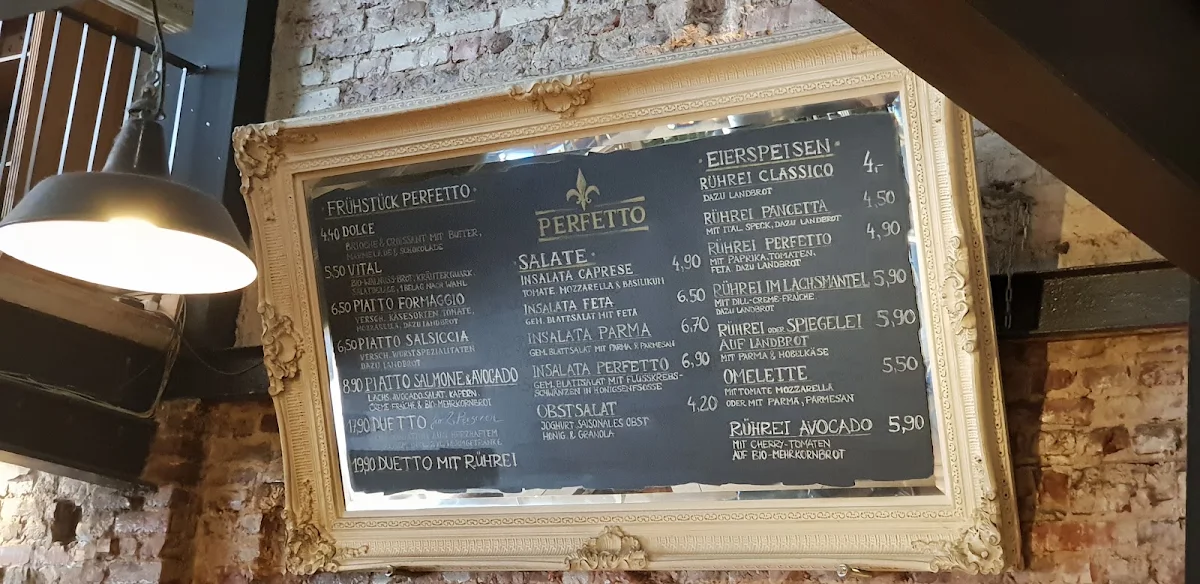 FRÜHSTÜCK PERFETTO
4.40 DOLCE
BRIOCHE & CROISSANT MIT BUTTER,
MARMELADE & SCHOKOLADE
5.50 VITAL
BIO-WALNUSS-BROT, KRÄUTERQUARK,
1 BELAG NACH WAHL
6,50 PIATTO FORMAGGIO
VERSCH. KÄSESORTEN, TOMATE,
DAZU LANDBROT
6,50 PIATTO SALSICCIA
VERSCH. WURSTSPEZIALITÄTEN
DAZU LANDBROT
8,90 PIATTO SALMONE & AVOCADO
LACHS, AVOCADOSALAT, KAPERN,
CREME FRAICHE & BIO-MEHRKORNBROT
17,90 DUETTO für 2 Personen
19,90 DUETTO MIT RÜHREI
PERFETTO
SALATE
INSALATA CAPRESE 4,90
TOMATE, MOZZARELLA & BASILIKUM
INSALATA FETA 6.50
GEM. BLATTSALAT MIT FETA
INSALATA PARMA 6.70
GEM. BLATTSALAT MIT PARMA & PARMESAN
INSALATA PERFETTO 6,90
GEM. BLATTSALAT MIT FLUSSKREBS-
SCHWÄNZEN IN HONIGSENFSOSSE
OBSTSALAT 4.20
JOGHURT, SAISONALES OBST
HONIG & GRANOLA
EIERSPEISEN
RÜHREI CLASSICO 4,-
DAZU LANDBROT
RÜHREI PANCETTA 4,50
MIT ITAL. SPECK, DAZU LANDBROT
RÜHREI PERFETTO 4,90
MIT PAPRIKA, TOMATEN,
FETA DAZU LANDBROT
RÜHREI IM LACHSMANTEL 5,90
MIT DILL-CREME-FRAICHE
DAZU LANDBROT
RÜHREI ODER SPIEGELEI 5,90
AUF LANDBROT
MIT PARMA & HOBELKÄSE
OMELETTE 5,50
MIT TOMATE MOZZARELLA
ODER MIT PARMA, PARMESAN
RÜHREI AVOCADO 5,90
MIT CHERRY-TOMATEN
AUF BIO-MEHRKORNBROT